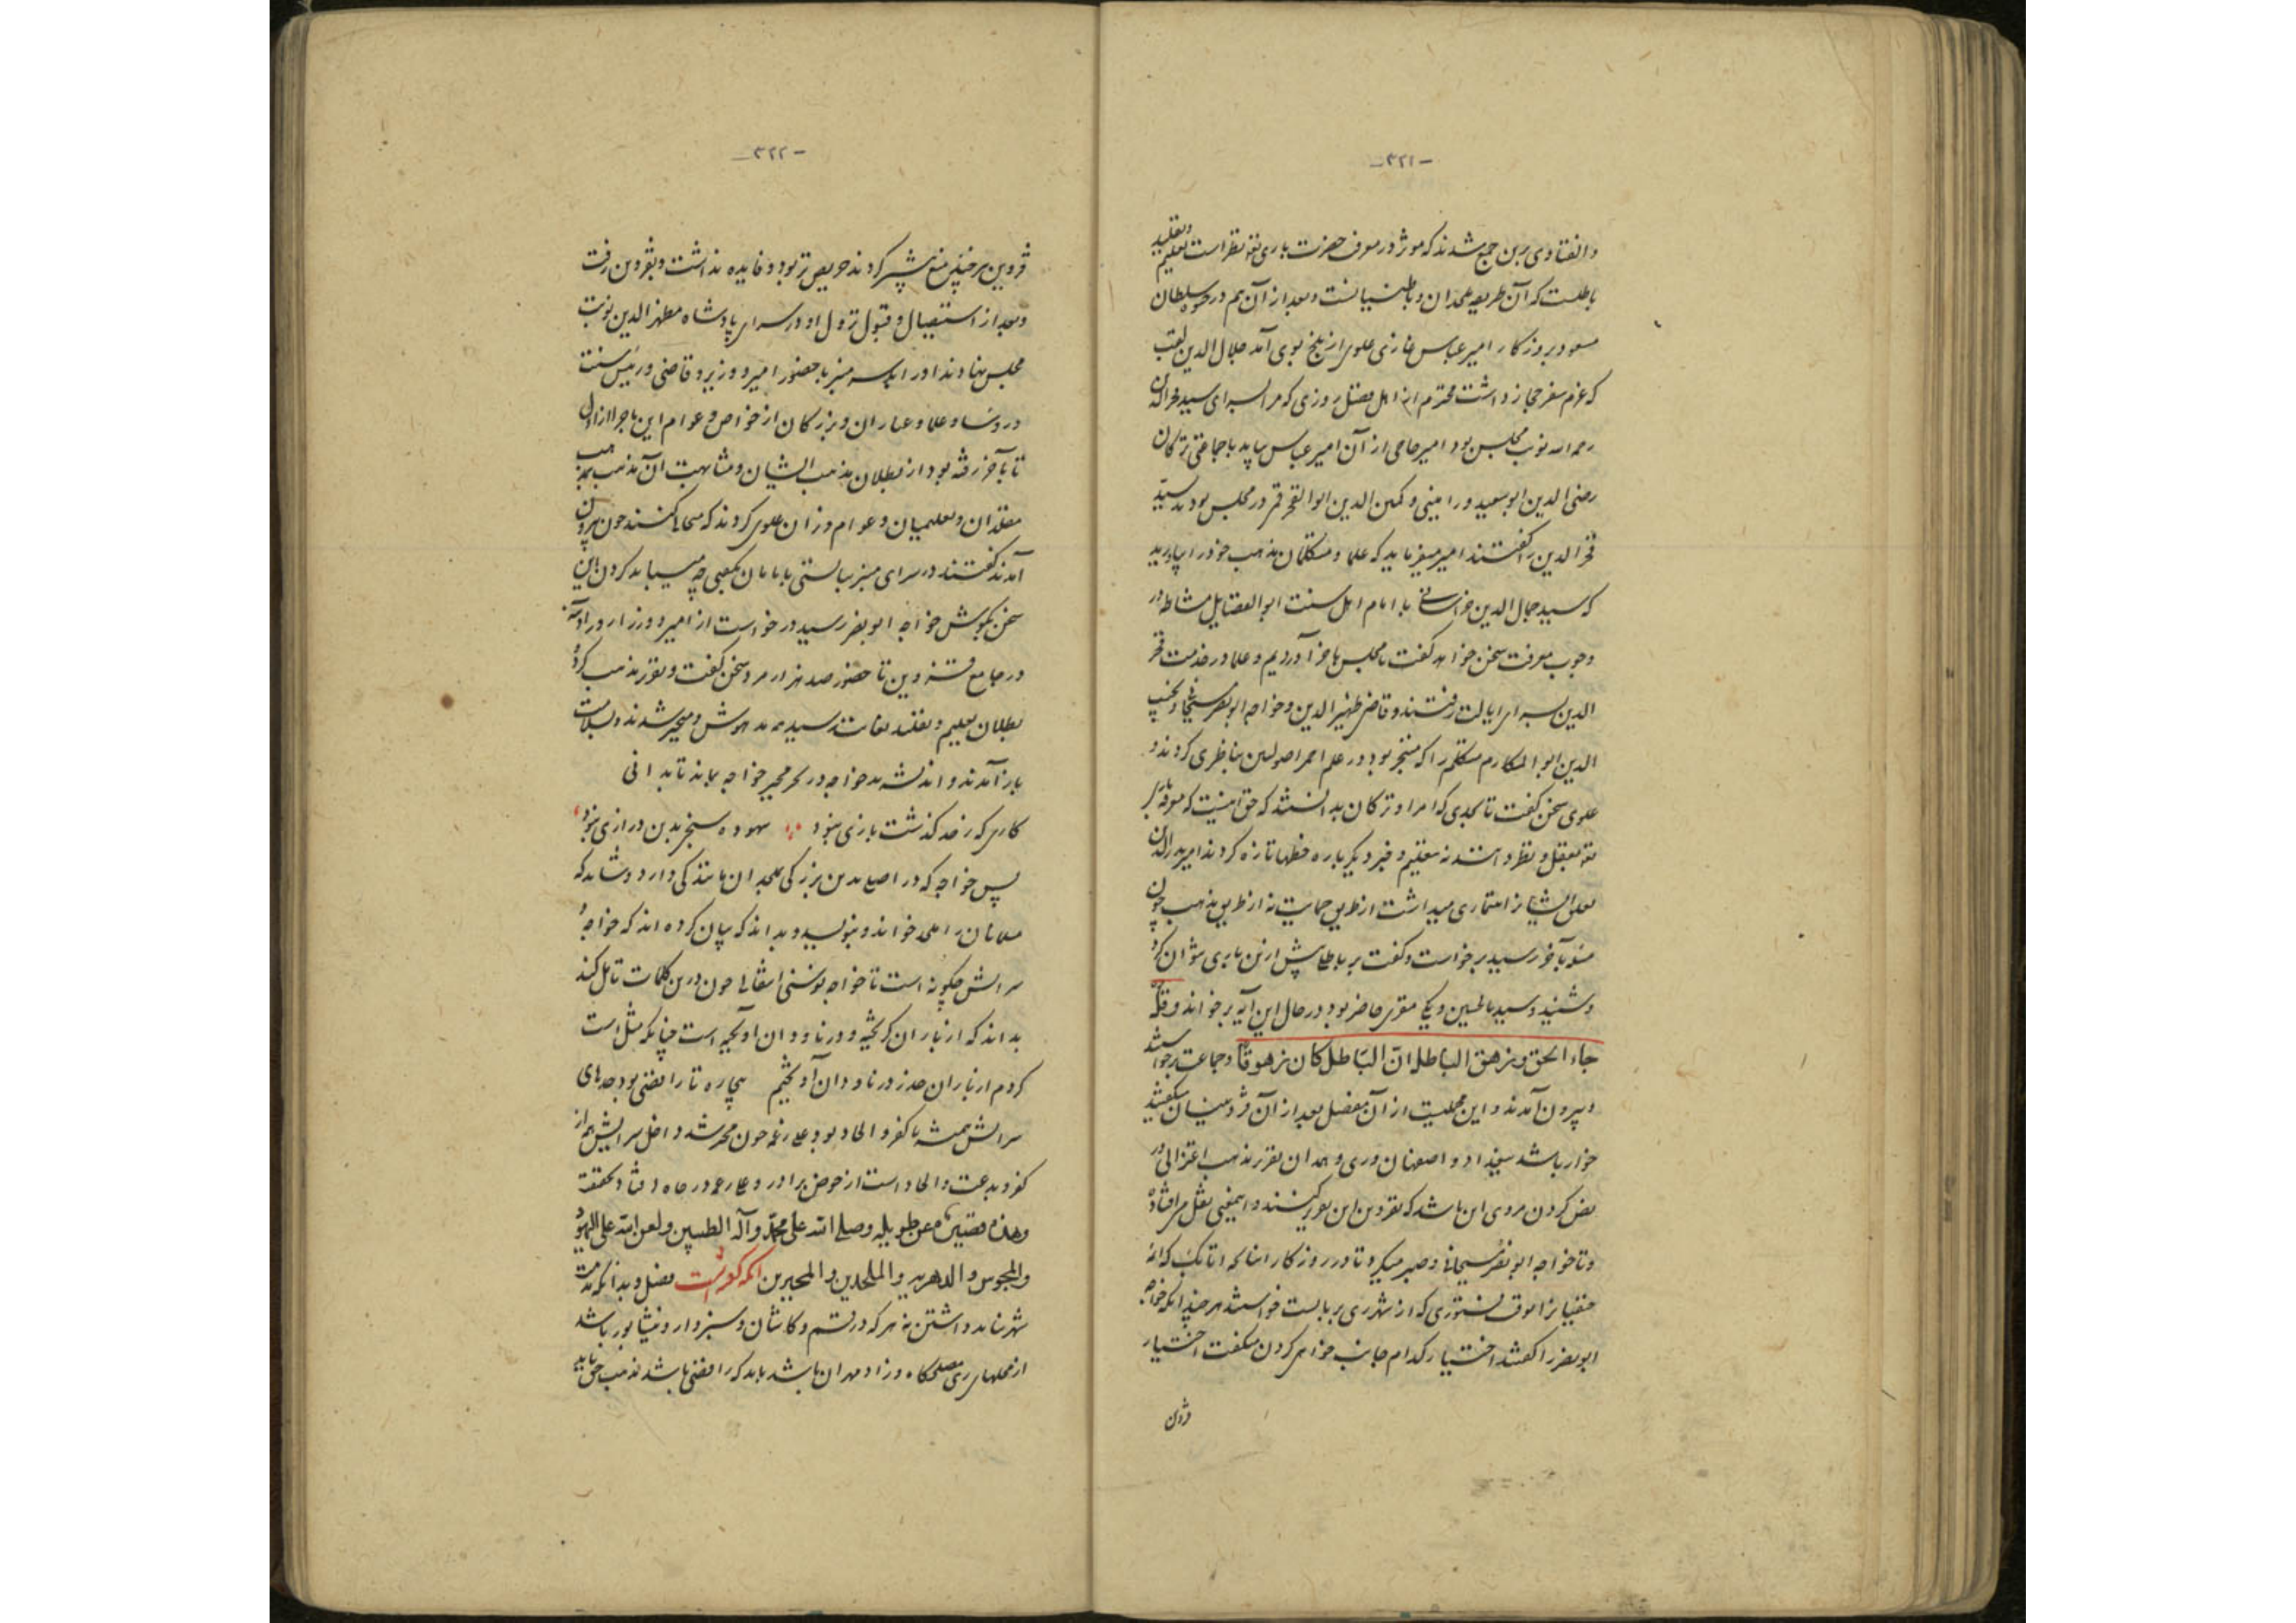 -٣٢١-
و الفتاوی برین جمع شدند که مؤثر در معرفت حضرت باری تعه نظر است تعلیم و تقلید
باطلست که آن طریقه ملحدان و باطنیانست و بعد از آن هم در عهد سلطان
مسعود بروزکار امیر عباس غازی علوی از بلخ بوی آمد جلال الدین لقب
که عزم سفر حجاز داشت محترم از اهل فضل روزی که در سرای سید فخرالدین
رحمه الله نوبت مجلس بود امیر حاجی از آن امیر عباس بیاید با جماعتی ترکان
رضی الدین ابو سعید ورامینی و مکین الدین ابوالفخر قمی در مجلس بودند سید
فخر الدین را گفتند امیر میفرماید که علما و متکلمان مذهب خود را بیاورید
که سید جمال الدین خراسانی با امام اهل سنت ابو الفضایل مشاط در
وجوب معرفت سخن خواهد گفت تا مجلس ما حرا آوردیم و علما در خدمت فخر
الدین بسرای ایالت رفتند و قاضی ظهیر الدین و خواجه ابو نصر هسنجانی و نجیب
الدین ابو المکارم متکلم را که متبحر بود در علم امر اصولین مناظری کردند و
علوی سخن گفت تا بحدی که امرا و ترکان بدانستند که حق اینست که معرفة باری
تعه بعقل و نظر دانند نه بتعلیم و خبر دیگر باره خطها تازه کردند امیر
تعلق ایشانرا اعتماری میداشت از طریق حمایت نه از طریق مذهب چون
مناظره بآخر رسید برخواست و گفت بر باطل پیش ازین یاری نتوان کرد
و شنید و سید بالحسین و یکی مقری حاضر بود در حال این آیه برخواند و قل
جاء الحق و زهق الباطل انّ الباطل کان زهوقا و جماعت برخواستند
و بیرون آمدند و این مجلیست از آن مفصل بعد از آن قزوینیان میگفتند
خوار باشد ببغداد و اصفهان و ری و همدان تقریر مذهب اعتزالی و
نقض کردن مروی این باشد که بقزوین این تقریر کنند و اینمعنی بنقل می افتاد
و تا خواجه ابو نصر هسنجانی و صبر میکرد تا در روزکار اینانجه اتابک که ائمهٔ
حنفیانرا موقت دستوری که از شهر ری بربایست خواستند هر چند آنکه خواجه
ابو نصر را گفتند اختیار کدام جانب خواهی کردن میگفت اختیار
قزوین
-٣٢٢-
قزوین هر چند پس منع بیشتر کردند حریص تر بود و فایده نداشت و بقزوین رفت
و بعد از استقبال و قبول نزول او در سرای پادشاه مظفر الدین نوبت
مجلس نهادند او را بر سر منبر با حضور امیر و وزیر و قاضی و رئیس سنت
و روساء و علما و عیاران و بزرگان از خواص و عوام این ماجرا از اول
تا بآخر رفته بود از بطلان مذهب ایشان و مشابهت آن مذهب بمذهب
مقلدان و تعلیمیان و عوام و زنان علوی کردند که محابا نکنند چون بیرون
آمدند گفتند در سرای منبر ببایستی با امامان بگفتی چه میباید کردن این
سخن بگوش خواجه ابو نصر رسید درخواست از امیر و وزرا و در آدینه
در جامع قزوین تا حضور صد هزار مرد سخن گفت و تقریر مذهب کرد و
بطلان تعلیم و تقلید بغایت رسید همه مدهوش و متحیر شدند و بسلامت
باز آمدند و اندیشهٔ خواجه در بحر تحیر خواجه بماند تا بدانی
کاری که ز حد گذشت بازی نبود ؛ بیهوده سخن بدین درازی نبود
پس خواجه که در اصل بدین بزرگی بملحدان مانندگی دارد و شاید که
مسلمانان را ملحد خواند و بنویسد و بداند که بیان کرده اند که خواجه
سرایش چگونه است تا خواجه نوسنی انتقالی چون درین کلمات تامل کند
بداند که از باران گریخته و در ناودان آویخته است چنانکه مثل است
کردم از باران حذر در ناودان آویختم بیچاره تا رافضی بود جدهای
سرایش همیشه با کفر و الحاد بود علی رغمه چون مجبر شد داخل سرایش هم از
کفر و بدعت و الحاد است از خوض برادر و علی رغم در چاه افتاد بحقیقت
وهذه قصتین معن طویله و صلی الله علی محمد و آله الطیبین و لعن الله علی الیهود
و المجوس و الدهریه و الملحدین و المجبرین آنکه گوئست فصل و بدانکه مذمت
شهر نباید داشتن نه هر که در قم و کاشان و سبزوار و نیشابور باشد
از محلهای ری مصلحکاه و زاد مهران باشد باید که رافضی باشد مذهب حق باید